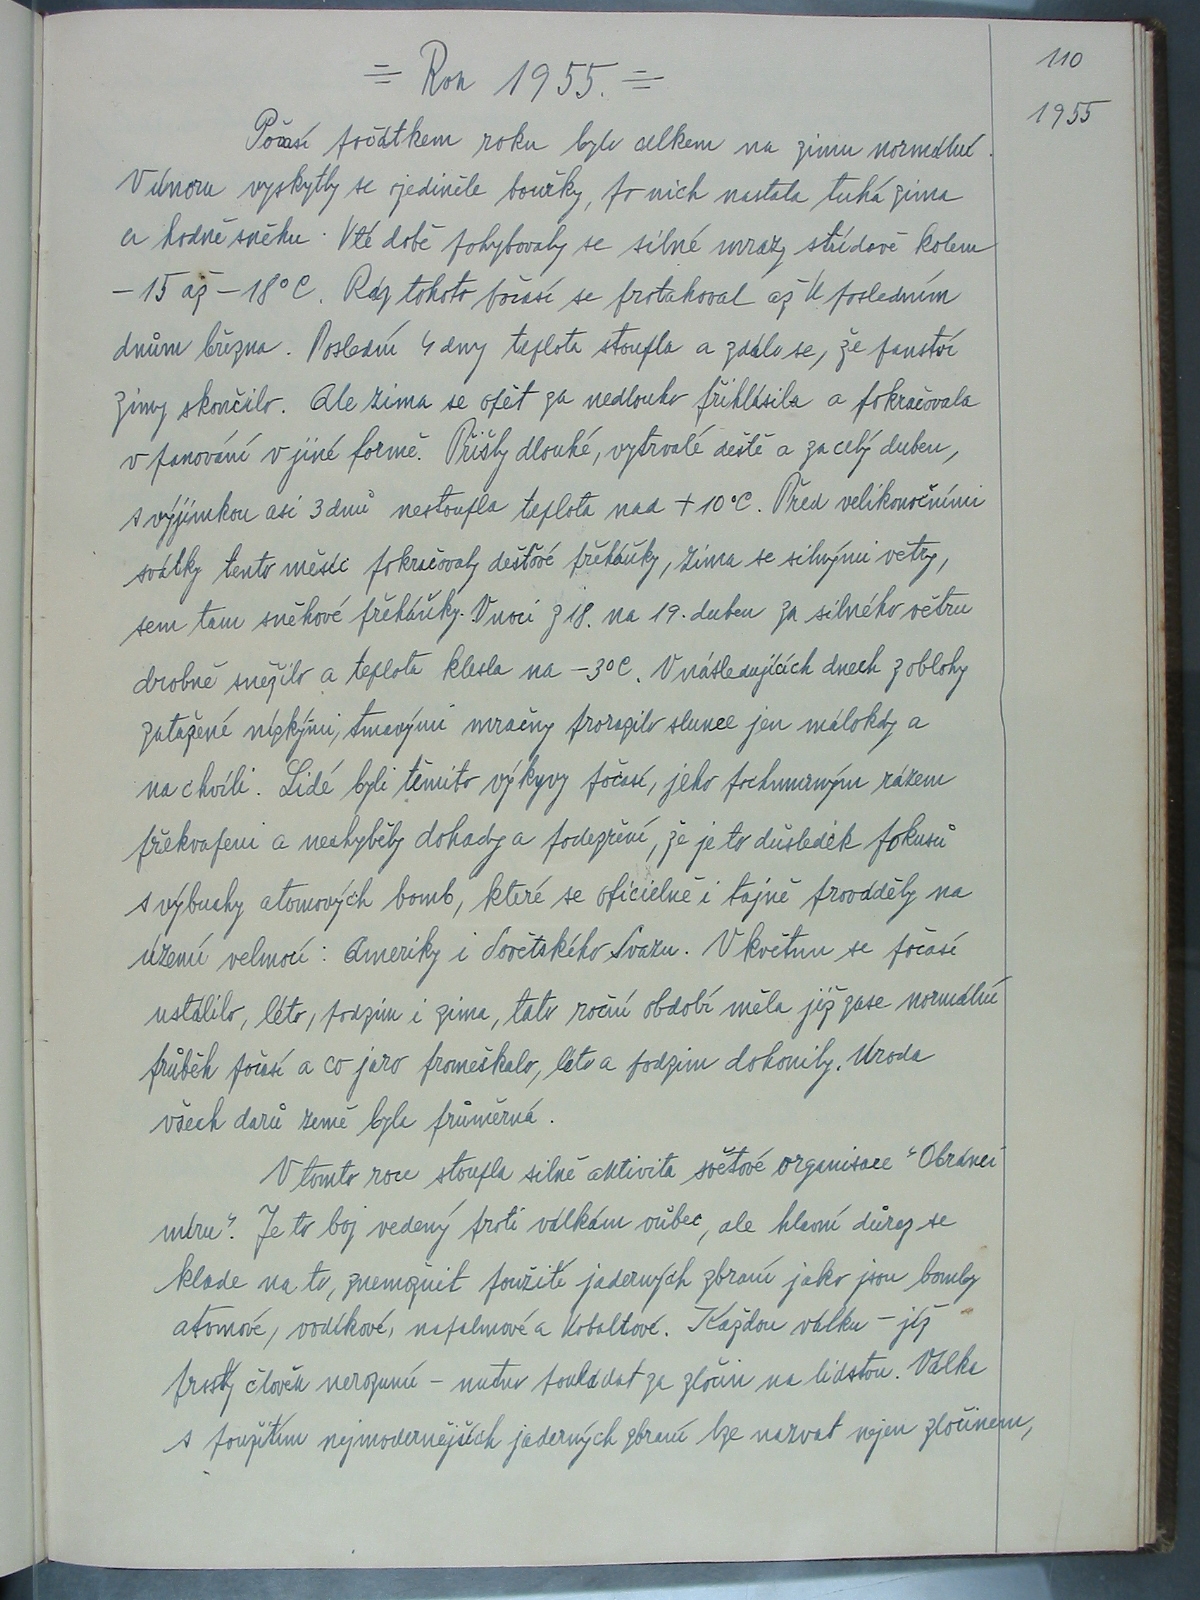 = Rok 1955. =
110
1955
Počasí počátkem roku bylo celkem na zimu normální.
V únoru vyskytly se ojediněle bouřky, po nich nastala tuhá zima
a hodně sněhu. V té době pohybovaly se silné mrazy střídavě kolem
– 15 až – 18°C. Ráz tohoto počasí se protahoval až k posledním
dnům března. Poslední 4 dny teplota stoupla a zdálo se, že panství
zimy skončilo. Ale zima se opět za nedlouho přihlásila a pokračovala
v panování v jiné formě. Přišly dlouhé, vytrvalé deště a za celý duben,
s výjimkou asi 3 dnů nestoupla teplota nad + 10°C. Před velikonočními
svátky tento měsíc pokračovaly dešťové přeháňky, zima se silnými větry,
sem tam sněhové přeháňky. V noci z 18. na 19. duben za silného větru
drobně sněžilo a teplota klesla na – 3°C. V následujících dnech z oblohy
zatažené nízkými, tmavými mračny prorazilo slunce jen málokdy a
na chvíli. Lidé byli těmito výkyvy počasí, jeho pochmurným rázem
překvapeni a nechyběly dohady a podezření, že je to důsledek pokusů
s výbuchy atomových bomb, které se oficielně i tajně prováděly na
území velmocí: Ameriky i Sovětského Svazu. V květnu se počasí
ustálilo, léto, podzim i zima, tato roční období měla již zase normální
průběh počasí a co jaro promeškalo, léto a podzim dohonily. Úroda
všech darů země byla průměrná.
V tomto roce stoupla silně aktivita světové organisace "Obránci
míru". Je to boj vedený proti válkám vůbec, ale hlavní důraz se
klade na to, znemožnit použití jaderných zbraní jako jsou bomby
atomové, vodíkové, napalmové a kobaltové. Každou válku – jíž
prostý člověk nerozumí – nutno pokládat za zločin na lidstvu. Válka
s použitím nejmodernějších jaderných zbraní lze nazvat nejen zločinem,